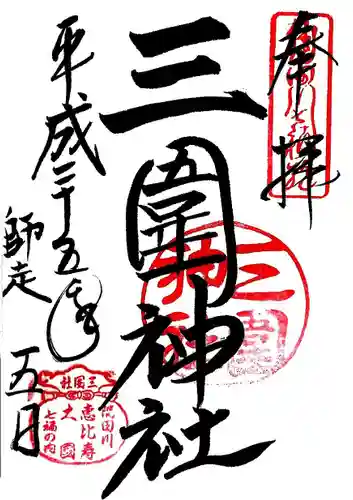 奉拝
三圍神社
平成二十五年
師走
五日
三囲社
隅田川
恵比寿
大國
七福の内